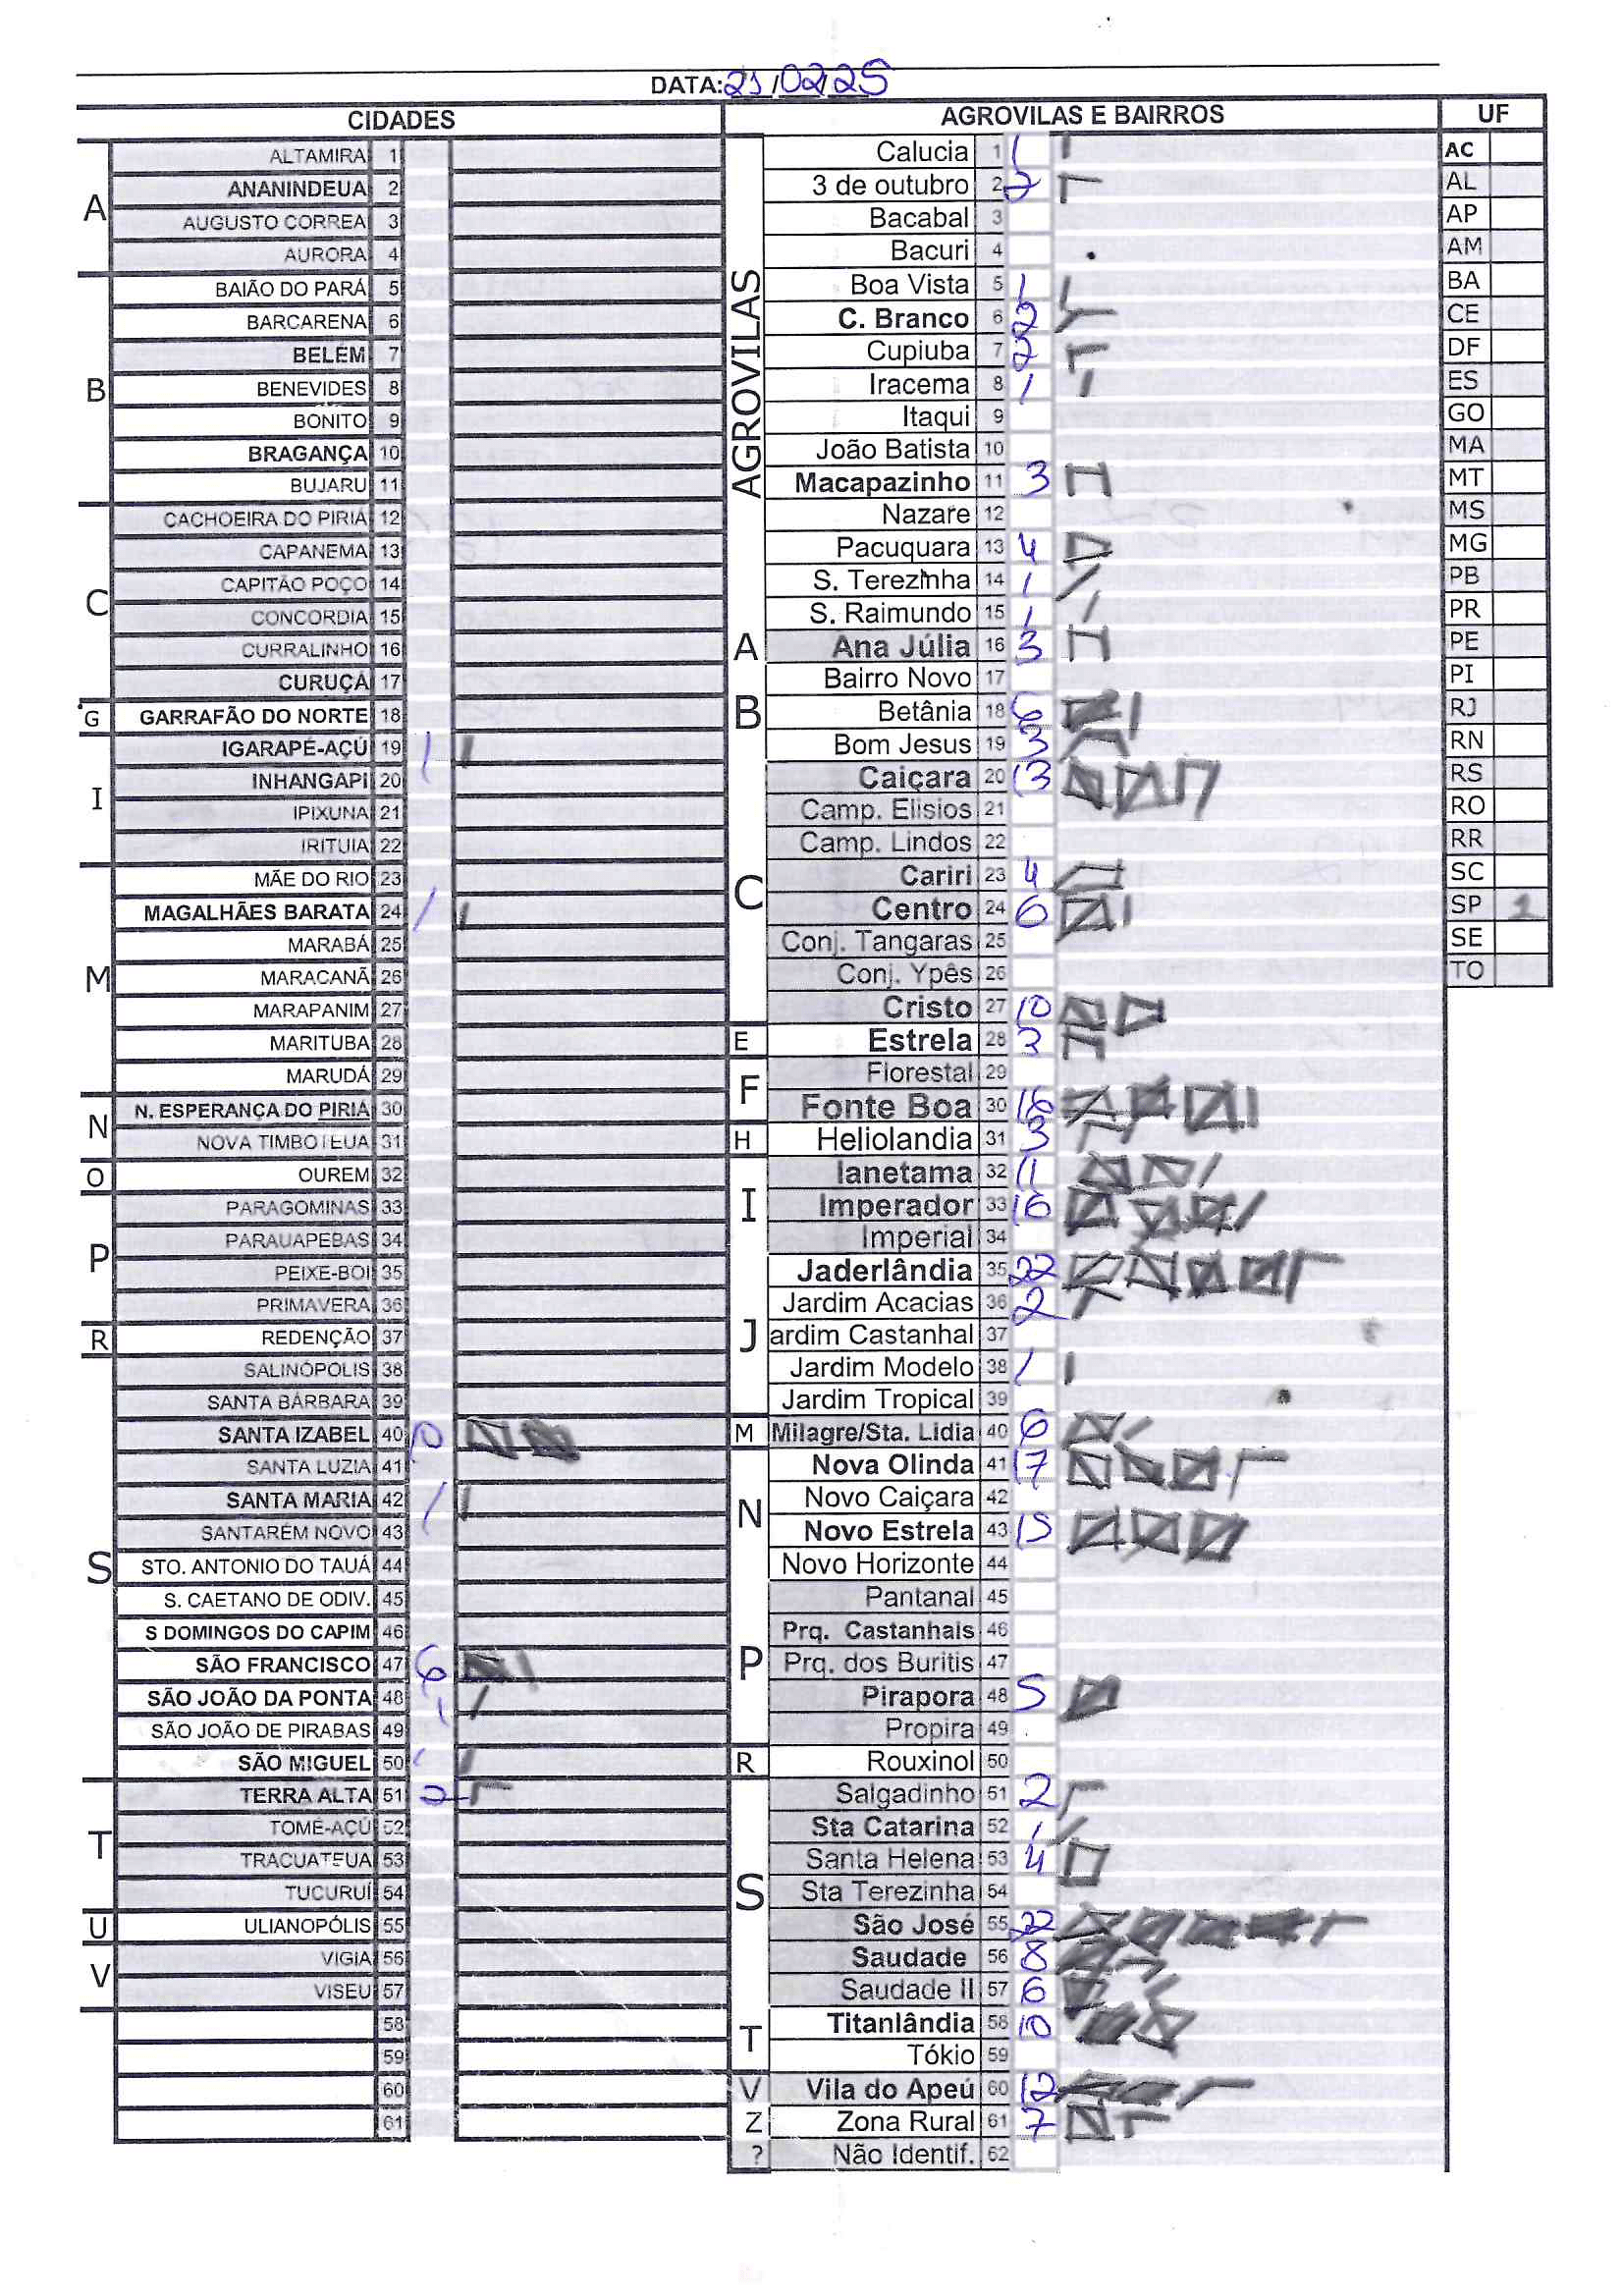 DATA: 21/02/25
CIDADES
A
ALTAMIRA 1
ANANINDEUA 2
AUGUSTO CORREA 3
AURORA 4
B
BAIÃO DO PARÁ 5
BARCARENA 6
BELÉM 7
BENEVIDES 8
BONITO 9
BRAGANÇA 10
BUJARU 11
C
CACHOEIRA DO PIRIÁ 12
CAPANEMA 13
CAPITÃO POÇO 14
CONCORDIA 15
CURRALINHO 16
CURUÇÁ 17
G
GARRAFÃO DO NORTE 18
I
IGARAPÉ-AÇÚ 19 1
INHANGAPI 20
IPIXUNA 21
IRITUIA 22
M
MÃE DO RIO 23
MAGALHÃES BARATA 24 1
MARABÁ 25
MARACANÃ 26
MARAPANIM 27
MARITUBA 28
MARUDÁ 29
N
N. ESPERANÇA DO PIRIÁ 30
NOVA TIMBOTEUA 31
O
OUREM 32
P
PARAGOMINAS 33
PARAUAPEBAS 34
PEIXE-BOI 35
PRIMAVERA 36
R
REDENÇÃO 37
S
SALINÓPOLIS 38
SANTA BÁRBARA 39
SANTA IZABEL 40 10
SANTA LUZIA 41
SANTA MARIA 42 1
SANTARÉM NOVO 43
STO. ANTONIO DO TAUÁ 44
S. CAETANO DE ODIV. 45
S DOMINGOS DO CAPIM 46
SÃO FRANCISCO 47 6
SÃO JOÃO DA PONTA 48 1
SÃO JOÃO DE PIRABAS 49
SÃO MIGUEL 50 1
T
TERRA ALTA 51 2
TOMÉ-AÇÚ 52
TRACUATEUA 53
TUCURUÍ 54
U
ULIANOPÓLIS 55
V
VIGIA 56
VISEU 57
58
59
60
61
AGROVILAS E BAIRROS
AGROVILAS
Calucia 1 1
3 de outubro 2 2
Bacabal 3
Bacuri 4
Boa Vista 5 1
C. Branco 6 2
Cupiuba 7 2
Iracema 8 1
Itaqui 9
João Batista 10
Macapazinho 11 3
Nazare 12
Pacuquara 13 4
S. Terezinha 14 1
S. Raimundo 15 1
A
Ana Júlia 16 3
B
Bairro Novo 17
Betânia 18 6
Bom Jesus 19 3
C
Caiçara 20 13
Camp. Elisios 21
Camp. Lindos 22
Cariri 23 4
Centro 24 6
Conj. Tangaras 25
Conj. Ypês 26
Cristo 27 10
E
Estrela 28 3
F
Florestal 29
Fonte Boa 30 16
H
Heliolandia 31 3
I
Ianetama 32 11
Imperador 33 16
Imperial 34
J
Jaderlândia 35 22
Jardim Acacias 36 2
ardim Castanhal 37
Jardim Modelo 38 1
Jardim Tropical 39
M
Milagre/Sta. Lidia 40 6
N
Nova Olinda 41 17
Novo Caiçara 42
Novo Estrela 43 15
Novo Horizonte 44
P
Pantanal 45
Prq. Castanhais 46
Prq. dos Buritis 47
Pirapora 48 5
Propira 49
R
Rouxinol 50
S
Salgadinho 51 2
Sta Catarina 52 1
Santa Helena 53 4
Sta Terezinha 54
São José 55 22
Saudade 56 8
Saudade II 57 6
T
Titanlândia 58 10
Tókio 59
V
Vila do Apeú 60 12
Z
Zona Rural 61 7
?
Não Identif. 62
UF
AC
AL
AP
AM
BA
CE
DF
ES
GO
MA
MT
MS
MG
PB
PR
PE
PI
RJ
RN
RS
RO
RR
SC
SP 1
SE
TO